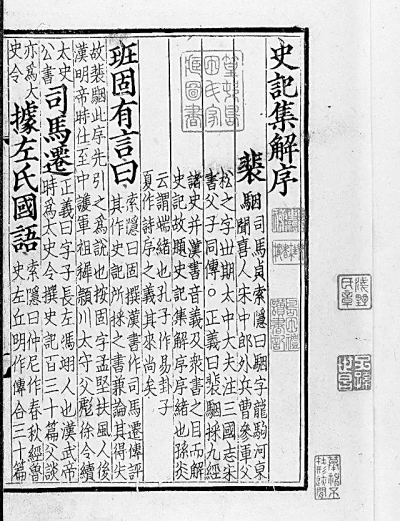 史記集解序
裴駰
司馬貞索隱曰駰字龍駒河東
聞喜人宋中郎外兵曹參軍父
松之字世期太中大夫注三國志宋
書父子同傳○正義曰裴駰採九經
諸史并漢書音義及衆書之目而解
史記故題史記集解序序緒也孫炎
云謂端緒也孔子作易卦子
夏作詩序之義其來尚矣
班固有言曰
索隱曰固撰漢書作司馬遷傳評
其作史記所採之書兼論其得失
故裴駰此序先引之爲說也按固字孟堅扶風人後
漢明帝時仕至中護軍祖稚潁川太守父彪徐令續
太史
公書
司馬遷
正義曰字子長左馮翊人也漢武帝
時爲太史令撰史記百三十篇父談
亦爲太
史令
據左氏國語
索隱曰仲尼作春秋經魯
史左丘明作傳合三十篇